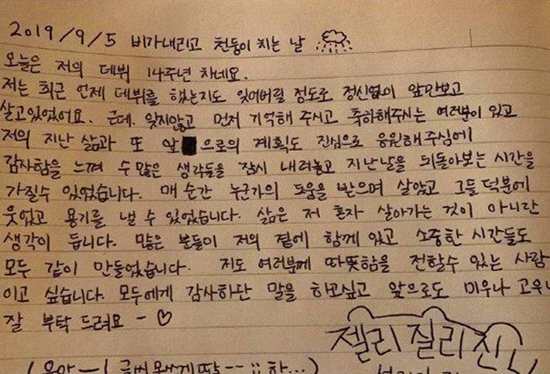 2019/9/5 비가내리고 천둥이 치는 날
오늘은 저의 데뷔 14주년 차네요.
저는 최근 언제 데뷔를 했는지도 잊어버릴 정도로 정신없이 앞만보고
살고있었어요. 근데, 잊지않고 먼저 기억해 주시고 축하해주시는 여러분이 있고
저의 지난 삶과 또 앞으로의 계획도 진심으로 응원해주심에
감사함을 느껴 수 많은 생각들을 잠시 내려놓고 지난날을 되돌아보는 시간을
가질수 있었습니다. 매 순간 누군가의 도움을 받으며 살았고 그들 덕분에
웃었고 용기를 낼 수 있었습니다. 삶은 저 혼자 살아가는 것이 아니란
생각이 듭니다. 많은 분들이 저의 곁에 함께 있고 소중한 시간들도
모두 같이 만들었습니다. 저도 여러분께 따뜻함을 전할수 있는 사람
이고 싶습니다. 모두에게 감사하단 말을 하고싶고 앞으로도 미우나 고우나
잘 부탁 드려요 - ♡
젤리젤리진